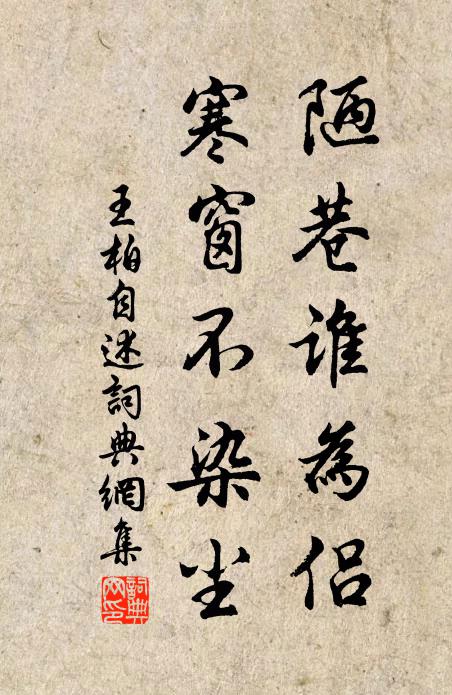 陋巷誰為侶
寒窗不染尘
王柏自述詞典網集
詞典網印